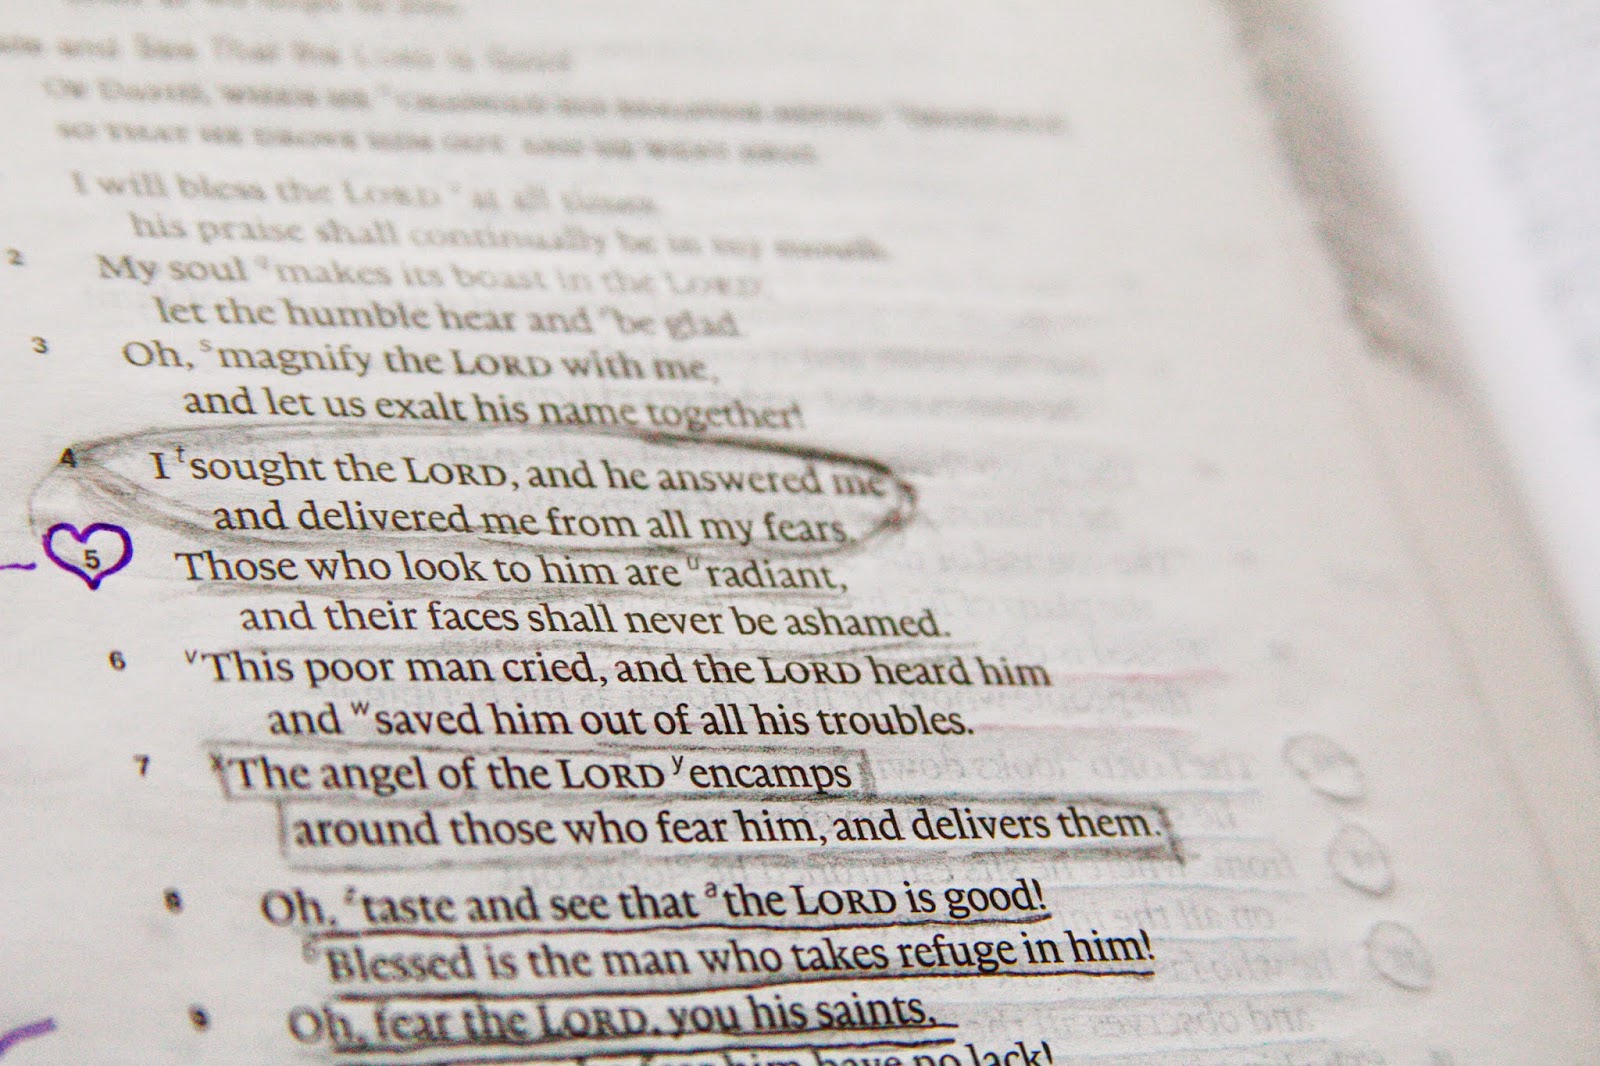 Taste and See That the Lord Is Good
OF DAVID, WHEN HE
SO THAT HE DROVE HIM OUT, AND HE WENT AWAY.
I will bless the LORD at all times
his praise shall continually be in my mouth.
2 My soul q makes its boast in the LORD
let the humble hear and r be glad.
3 Oh, s magnify the LORD with me,
and let us exalt his name together!
4 I t sought the LORD, and he answered me
and delivered me from all my fears.
5 Those who look to him are u radiant,
and their faces shall never be ashamed.
6 v This poor man cried, and the LORD heard him
and w saved him out of all his troubles.
7 x The angel of the LORD y encamps
around those who fear him, and delivers them.
8 Oh, z taste and see that a the LORD is good!
b Blessed is the man who takes refuge in him!
9 Oh, fear the LORD, you his saints,
fear him have no lack!